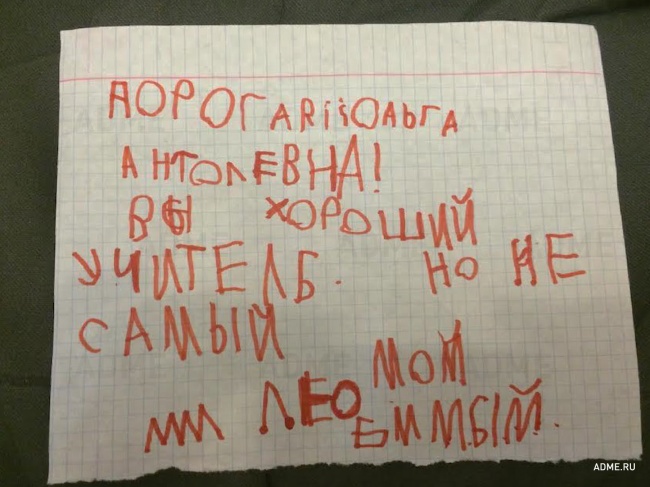 ДОРОГАЯ ОЛЬГА
АНТОЛЕВНА!
ВЫ ХОРОШИЙ
УЧИТЕЛЬ. НО НЕ
САМЫЙ
МОЙ
ЛЕО
БИМЫЙ.
ADME.RU